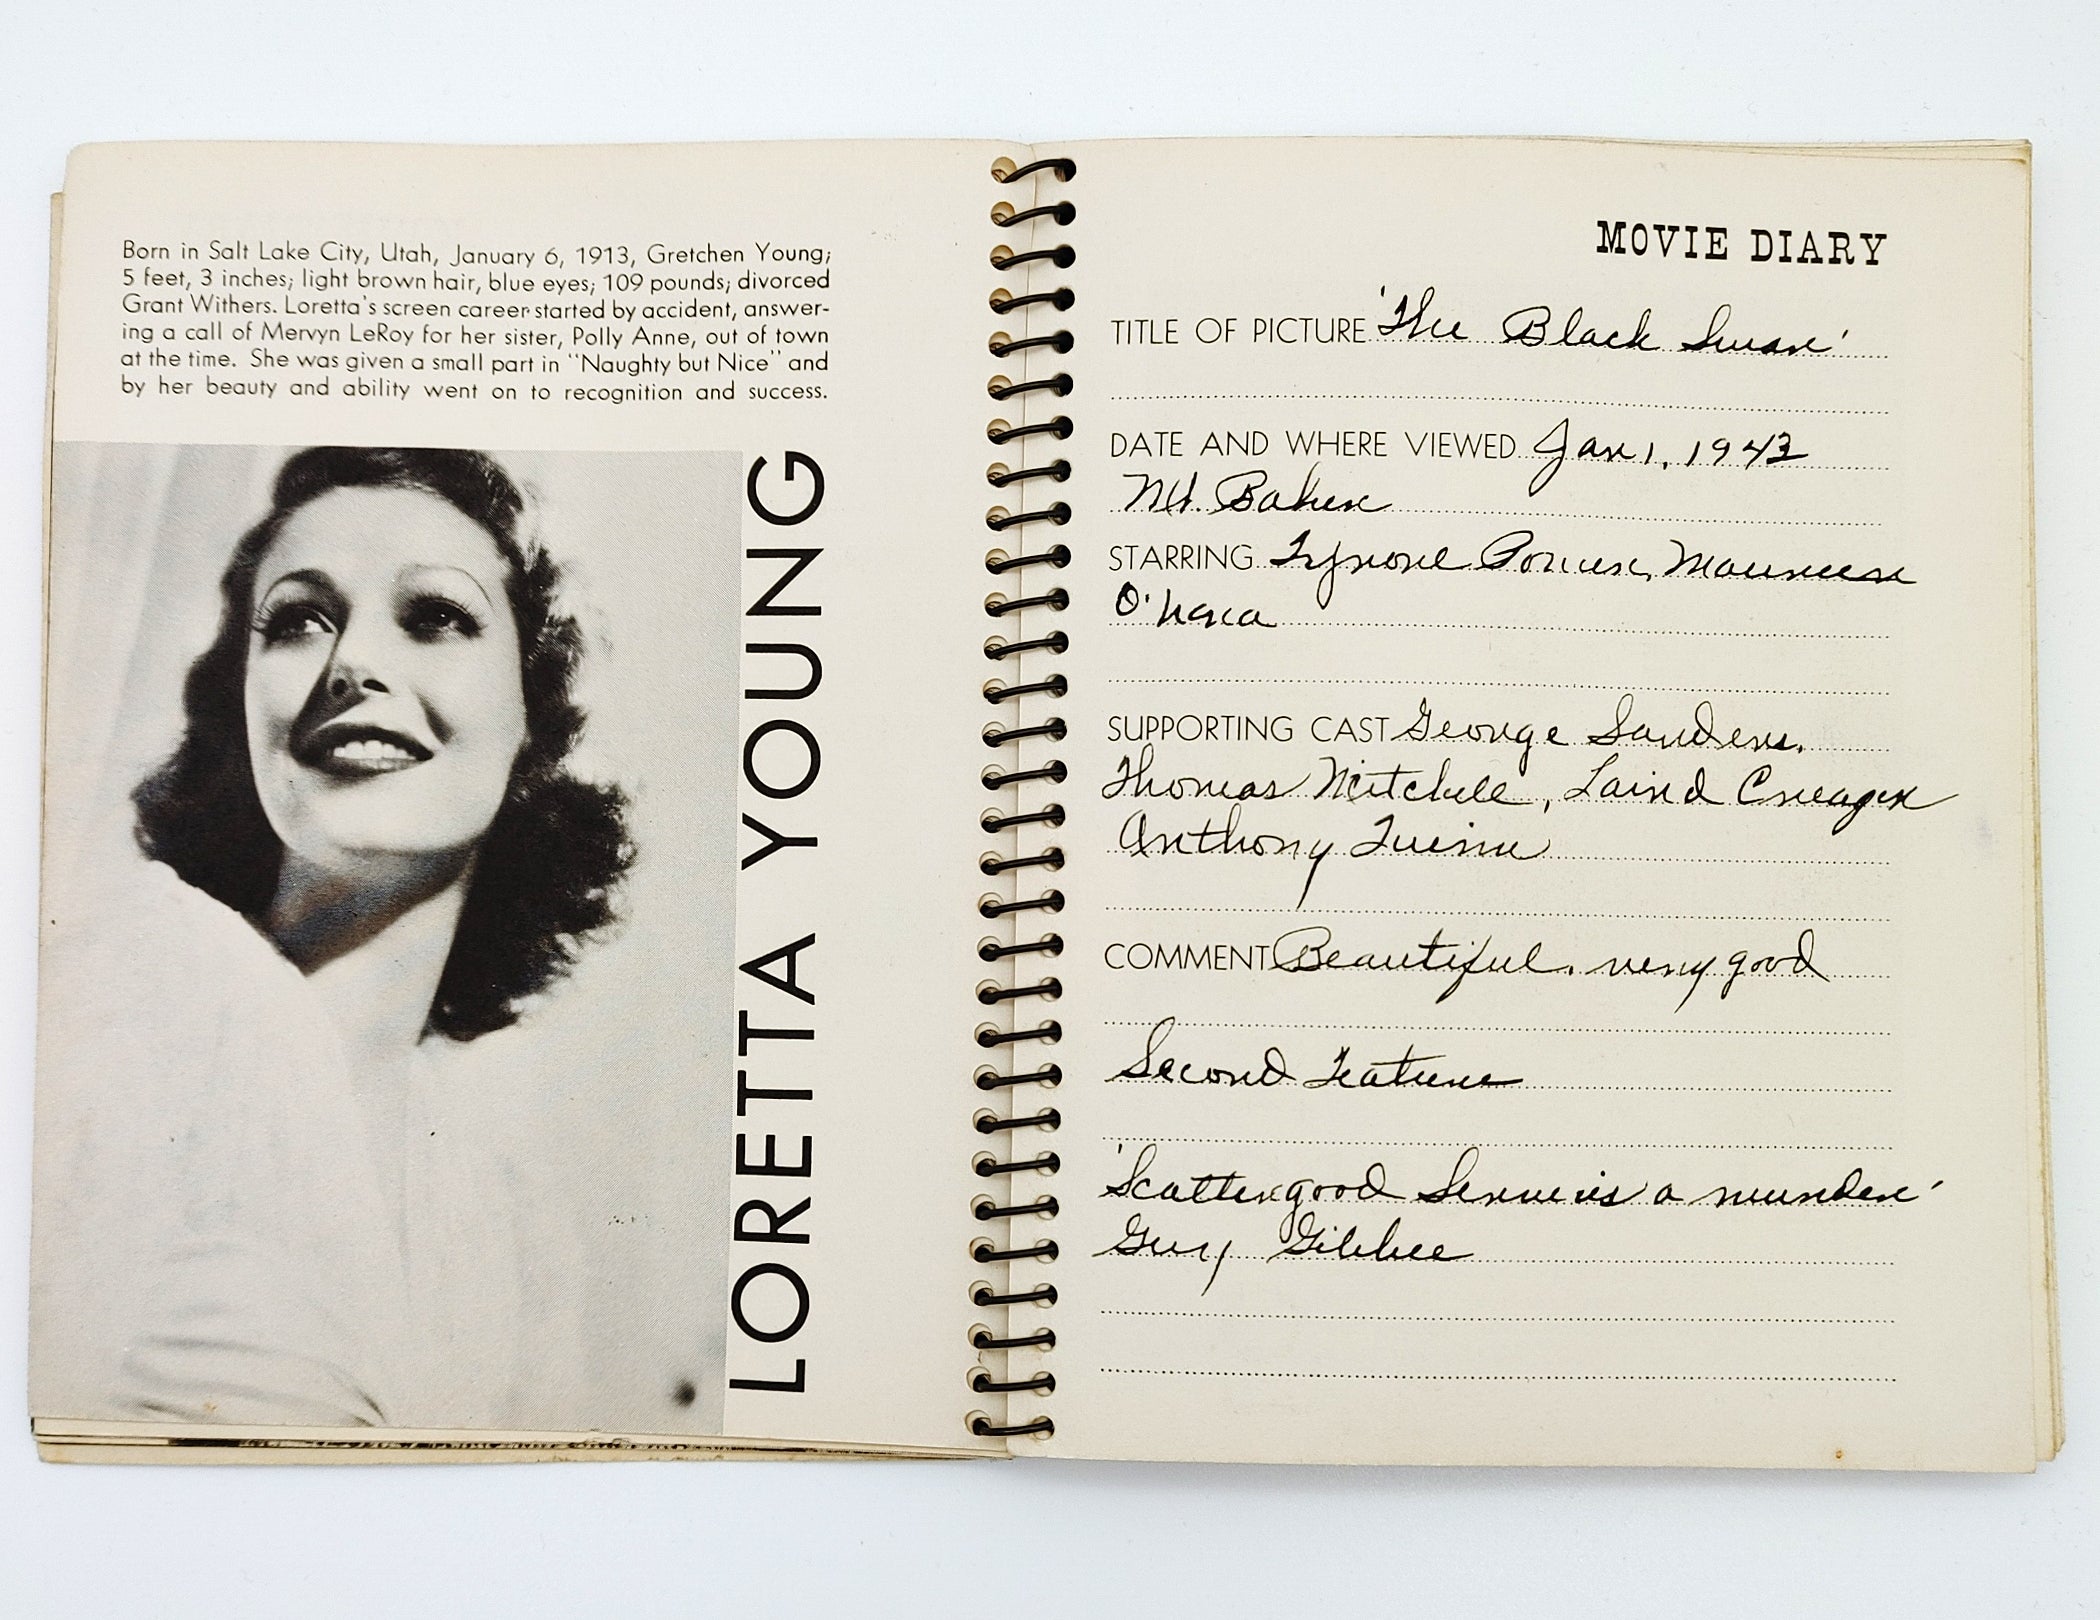 Born in Salt Lake City, Utah, January 6, 1913, Gretchen Young;
5 feet, 3 inches; light brown hair, blue eyes; 109 pounds; divorced
Grant Withers. Loretta's screen career started by accident, answer-
ing a call of Mervyn LeRoy for her sister, Polly Anne, out of town
at the time. She was given a small part in "Naughty but Nice" and
by her beauty and ability went on to recognition and success.
LORETTA YOUNG
MOVIE DIARY
TITLE OF PICTURE 'The Black Swan'
DATE AND WHERE VIEWED Jan 1, 1943
Mt. Baker
STARRING Tyrone Power, Maureen
O'hara
SUPPORTING CAST George Sanders,
Thomas Mitchell, Laird Creager
Anthony Quinn
COMMENT Beautiful, very good
Second Feature
'Scattergood Survives a murder'
Guy Gibbee